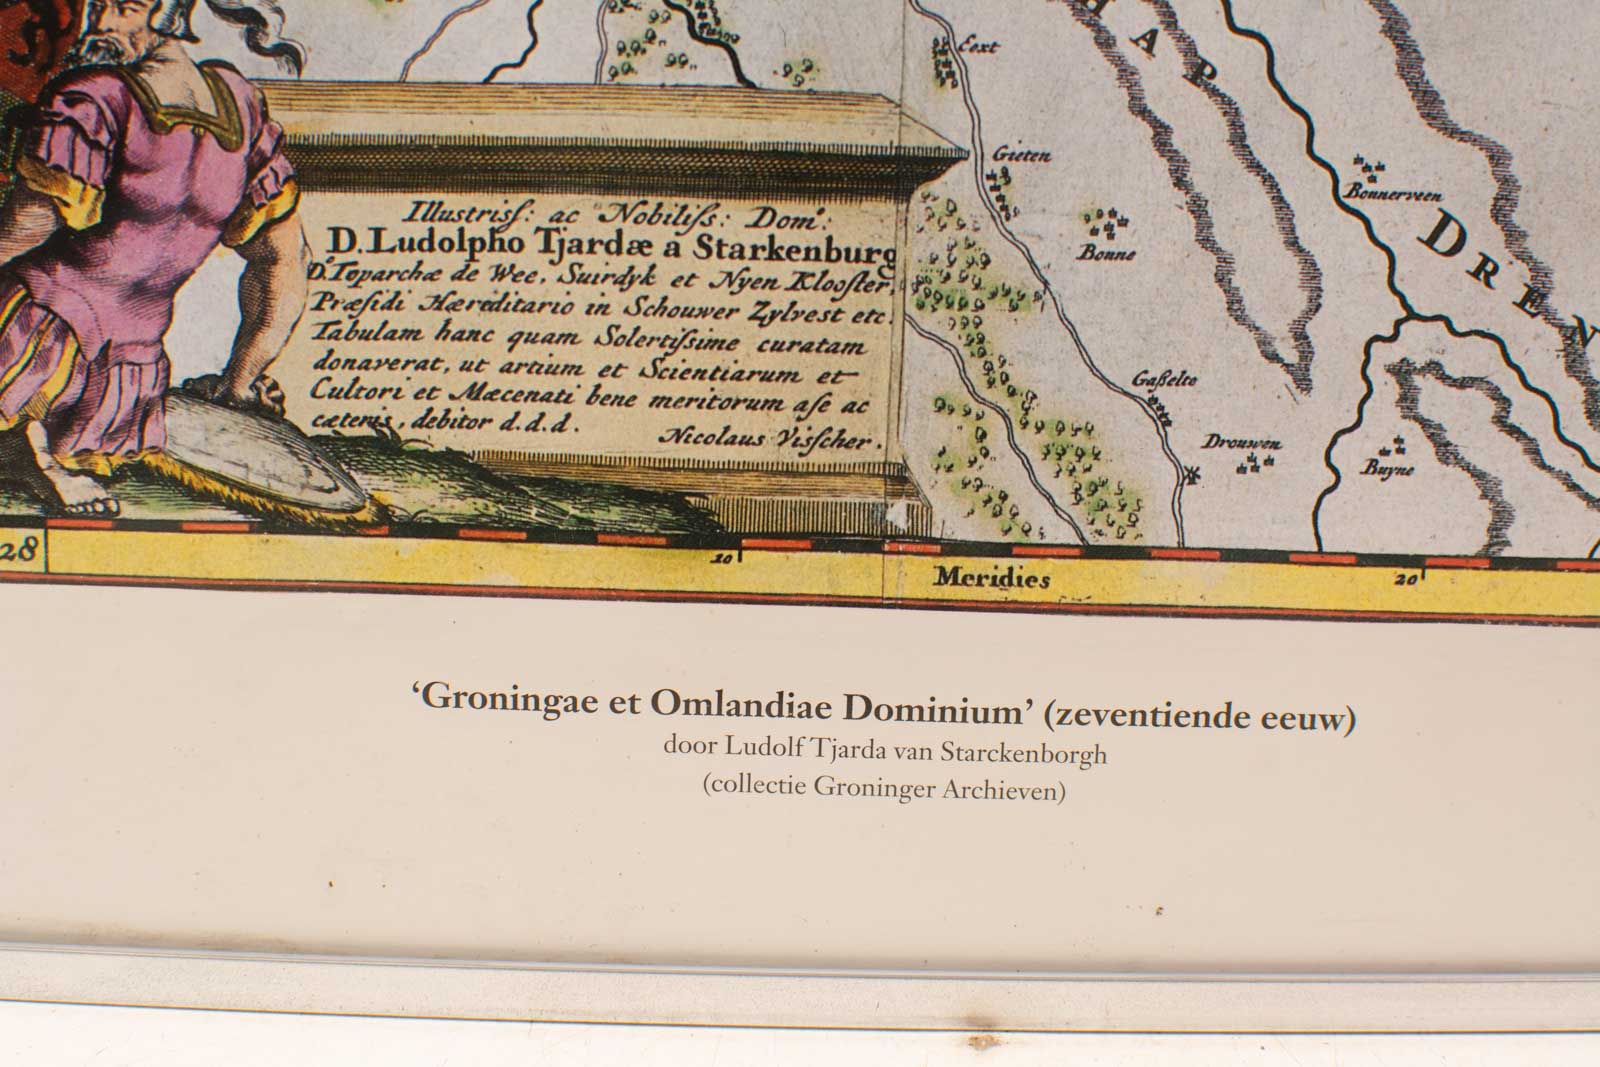 Eext
HAR
Gieten
Bonnerveen
Bonne
DREN
Illustrisſ: ac Nobiliſs: Domº:
D. Ludolpho Tjardæ a Starkenburg
Dº. Toparchæ de Wee, Suirdyk et Nyen Klooſter,
Præſidi Hæreditario in Schouwer Zylvest etc.
Tabulam hanc quam Solertiſsime curatam
donaverat, ut artium et Scientiarum et
Cultori et Mæcenati bene meritorum aſe ac
cæteris, debitor d.d.d.
Nicolaus Visſcher.
Gaßelte
Drouwen
Buyne
28
10
Meridies
20
‘Groningae et Omlandiae Dominium’ (zeventiende eeuw)
door Ludolf Tjarda van Starckenborgh
(collectie Groninger Archieven)